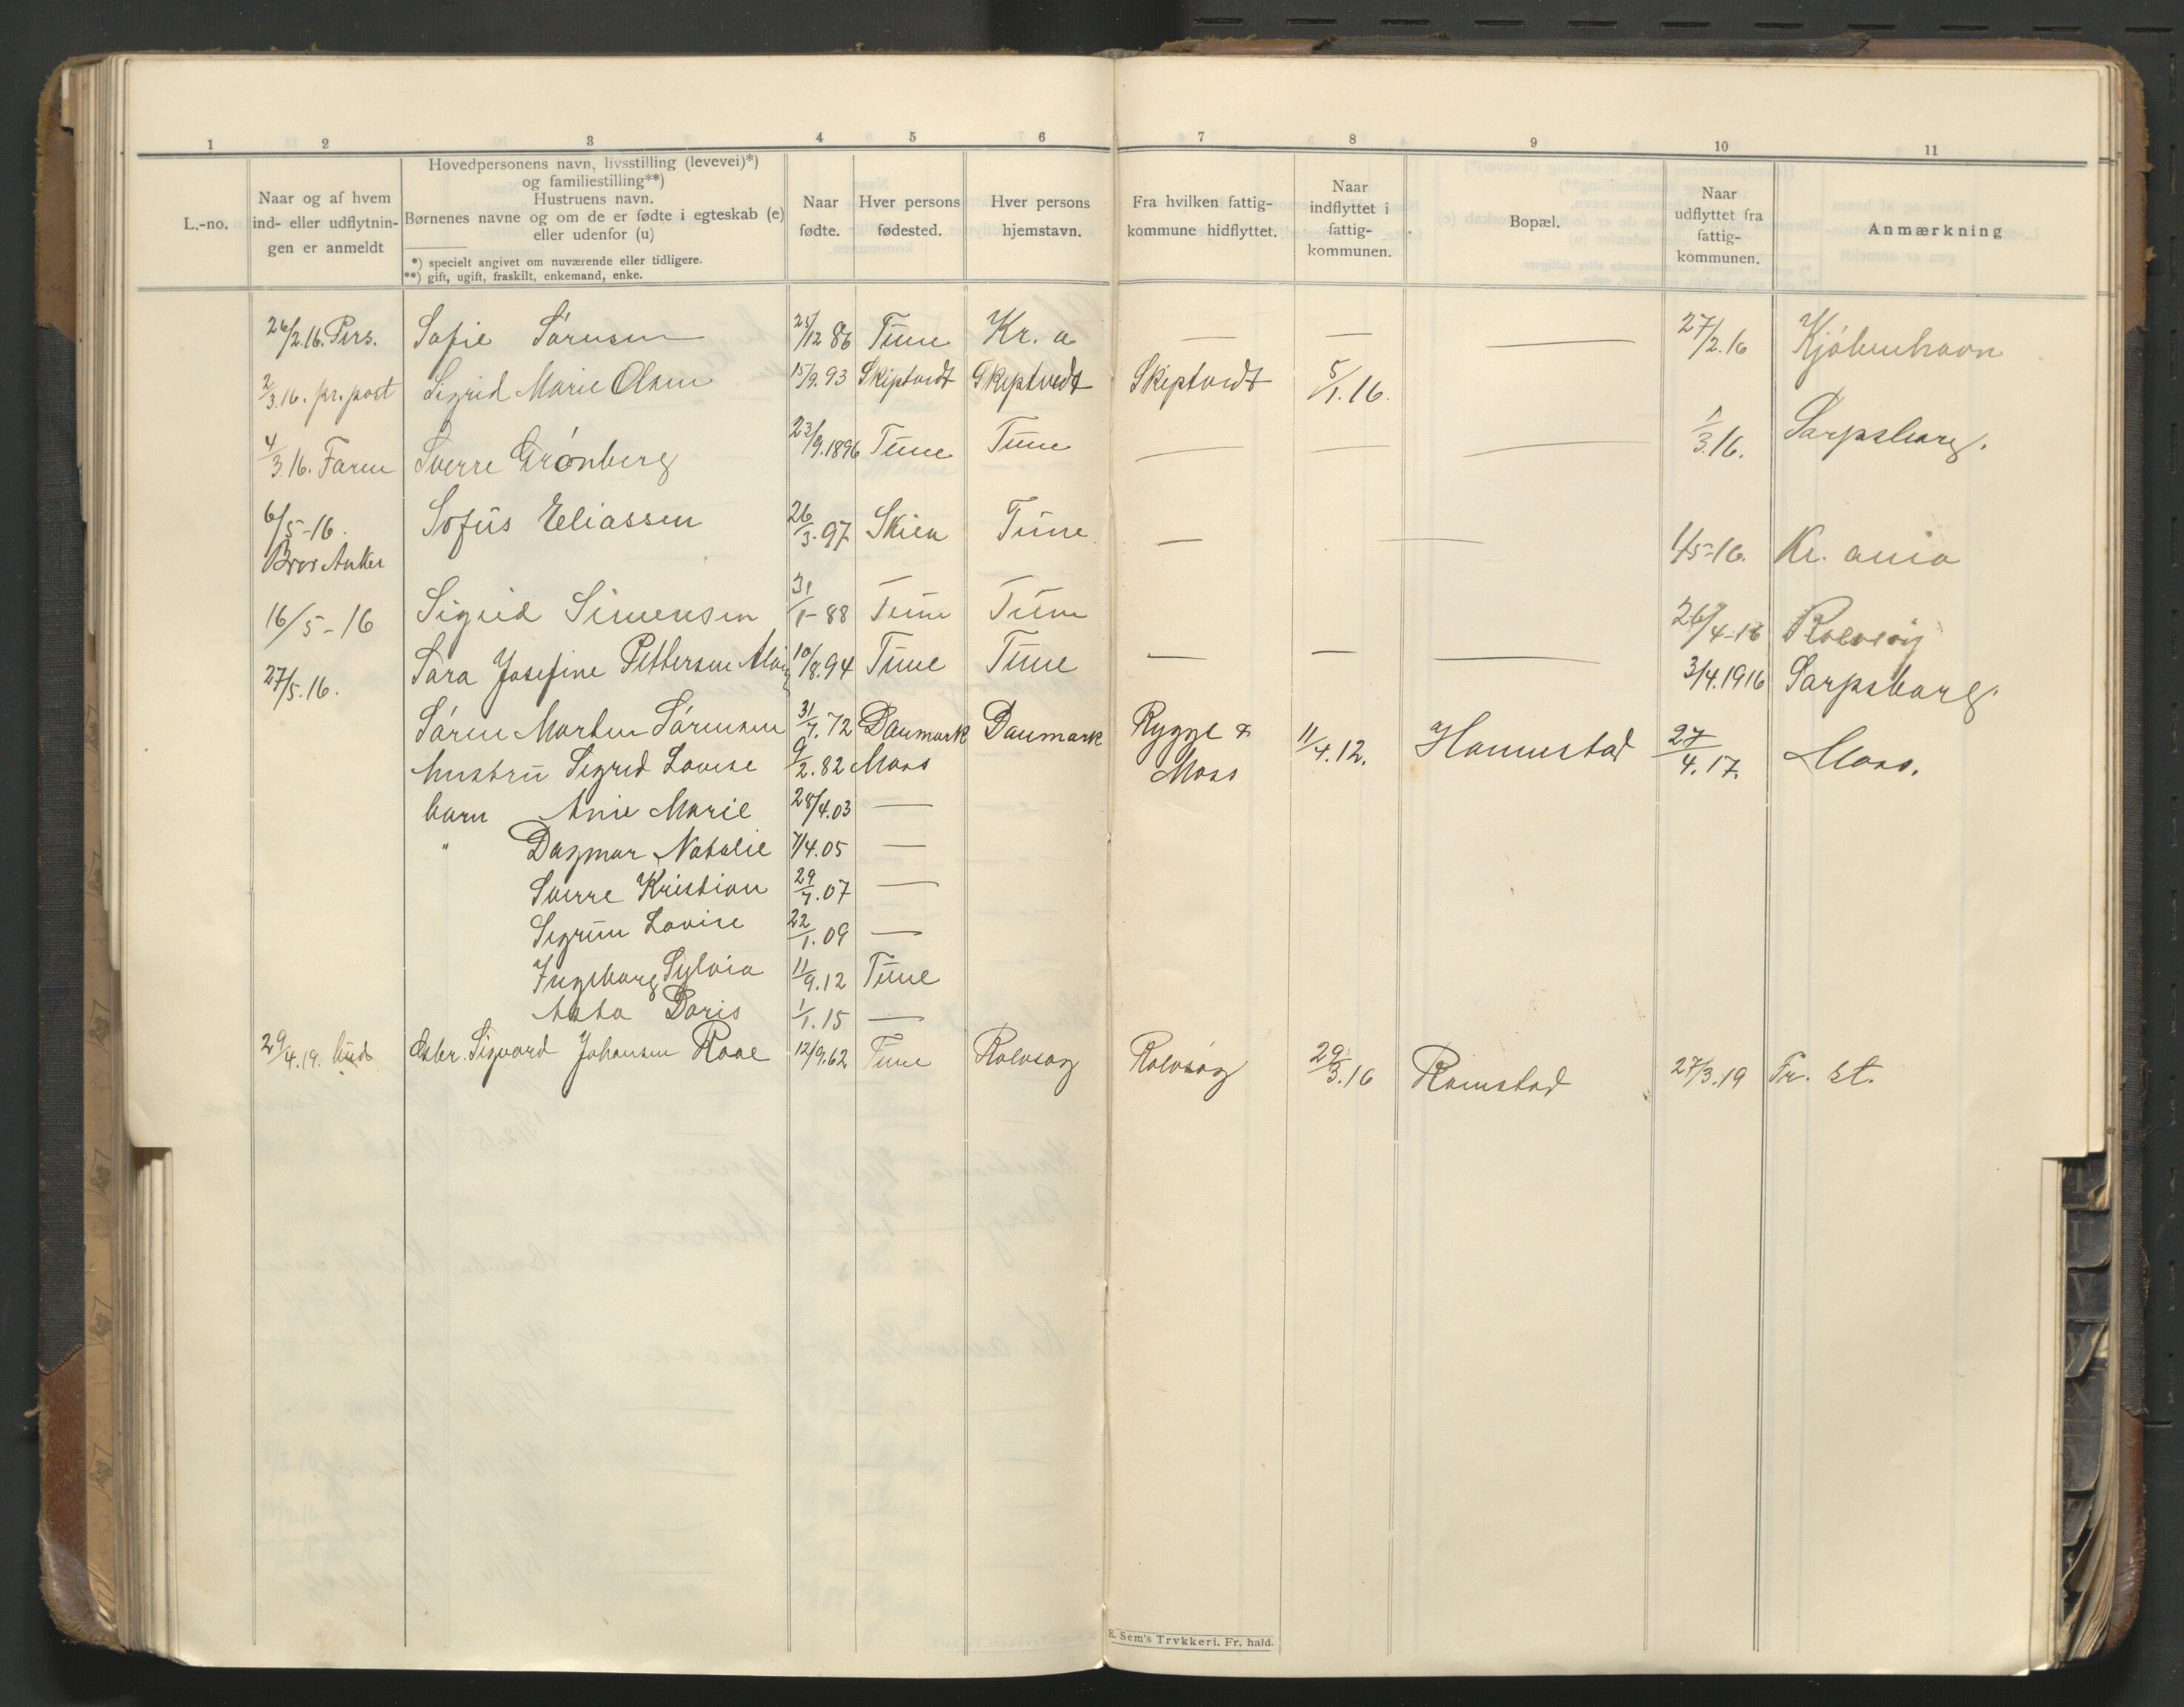 1 2 3 4 5 6 7 8 9 10 11
L.-no.
Naar og af hvem
ind- eller udflytnin-
gen er anmeldt
Hovedpersonens navn, livsstilling (levevei)*)
og familiestilling**)
Hustruens navn.
Børnenes navne og om de er fødte i egteskab (e)
eller udenfor (u)
*) specielt angivet om nuværende eller tidligere.
**) gift, ugift, fraskilt, enkemand, enke.
Naar
fødte.
Hver persons
fødested.
Hver persons
hjemstavn.
Fra hvilken fattig-
kommune hidflyttet.
Naar
indflyttet i
fattig-
kommunen.
Bopæl.
Naar
udflyttet fra
fattig-
kommunen.
Anmærkning
26/2.16. Pers. Sofie Sørensen 25/12 86 Tune Kr. a — — — 27/2.16 Kjøbenhavn
2/3.16. pr. post Sigrid Marie Olsen 15/9.93 Skiptvedt Skiptvedt Skiptvedt 5/1.16.
4/3.16. Faren Sverre Grønberg 23/9.1896 Tune Tune — — — 1/3.16. Sarpsborg.
6/5-16. Sofus Eliassen 26/3.97 Skien Tune — — 1/5-16. Kr. ania
Bror Anker
16/5-16 Sigrid Simensen 31/1-88 Tune Tune 26/4-16 Rolvsøy
27/5.16. Sara Josefine Pettersen 10/8.94 Tune Tune — — — 3/4.1916 Sarpsborg.
Søren Morten Sørensen 31/7.72 Danmark Danmark Rygge & 11/4.12. Hannestad 27/4.17. Moss.
hustru Sigrid Lovise 9/2.82 Moss Moss
barn Anie Marie 28/4.03 —
" Dagmar Natalie 7/4.05 —
Sverre Kristian 29/7.07 —
Sigrun Lovise 22/1.09 —
Ingeborg Sylvia 11/9.12 Tune
Asta Doris 1/1.15 —
29/4.19. Sigvard Johansen Roae 12/9.62 Tune Rolvsøy Rolvsøy 29/3.16 Ramstad 27/3.19 Fr. st.
E. Sem's Trykkeri. Fr. hald.